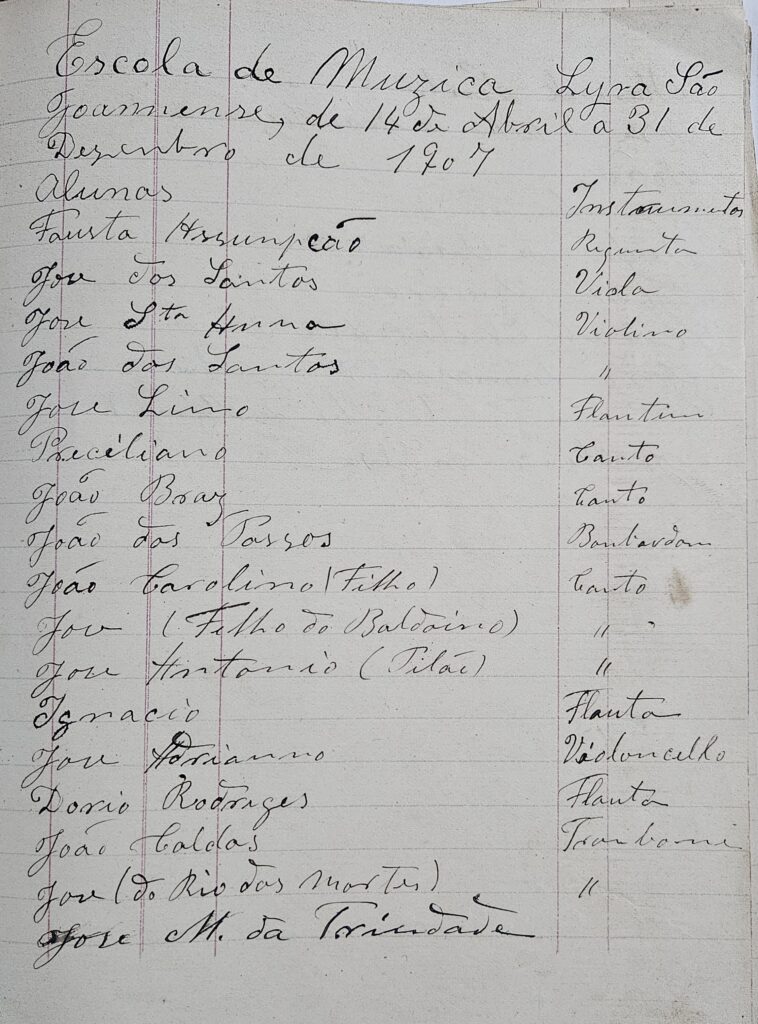 Escola de Muzica Lyra São
Joannense, de 14 de Abril a 31 de
Dezenbro de 1907
Alunas Instrumetos
Fausta Assumpcão Requinta
Jose dos Santos Viola
Jose Sta Anna Violino
João dos Santos "
Jose Lino Flautim
Preciliano Canto
João Braz Canto
João dos Passos Bonbardam
João Carolino (Filho) Canto
Jose (Filho do Baldoino) "
Jose Antonio (Pilão) "
Ignacio Flauta
Jose Adrianno Violoncello
Dorio Rodriges Flauta
João Caldas Trombone
Jose (do Rio das Mortes) "
Jose M. da Trindade